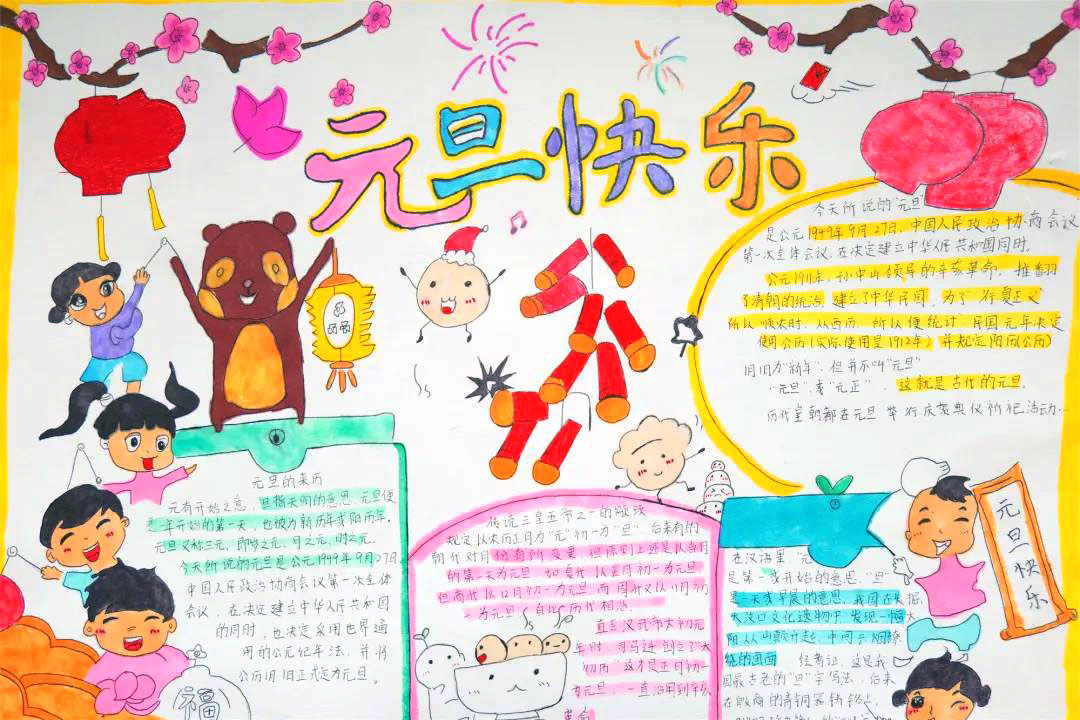 元旦快乐
今天所说的"元旦"
是公元1949年9月27日,中国人民政治协商会议
第一次全体会议,在决定建立中华人民共和国同时,
公元1911年,孙中山领导的辛亥革命,推翻
了清朝的统治,建立了中华民国,为了"行夏正
所以顺农时,从西历,所以便统计"民国元年决定
使用公历(实际使用是1912年)并规定阳历(公历)
旧旧为"新年",但并不叫"元旦"
"元旦"或"元正",这就是古代的元旦。
历代皇朝都在元旦举行庆贺典仪祈祀活动…
元旦的来历
元有开始之意,旦指天明的意思,元旦便
是一年开始的第一天,也被为新历年或阳历年,
元旦又称三元,即岁之元,月之元,时之元。
今天所说的元旦是公元1949年9月27日
中国人民政治协商会议第一次全体
会议,在决定建立中华人民共和国
的同时,也决定采用世界通
用的公元纪年法,并将
公历旧旧正式定为元旦。
传说三皇五帝之一的颛顼
规定以农历正月为"元"初一为"旦"后来有的
朝代对月份有所变更但原则上还是以当月
的第一天为元旦,如夏代以正月初一为元旦
但商代以12月初一为元旦而周代又以11月初
一为元旦,自此历代相感
直至汉武帝太初元
年时,司马迁创立了"太
初历"这才是正月初一
为元旦,一直沿用到辛亥
革命
在汉语里,"元
是第一或开始的意思,"旦"
是一天或早晨的意思,我国在发掘
大汶口文化遗物中,发现一幅太
阳从山颠升起,中间云烟缭
绕的画面 经考证,这是我
国最古老的"旦"字写法,后来
在殷商的青铜器铸铭上,
元旦快乐
福